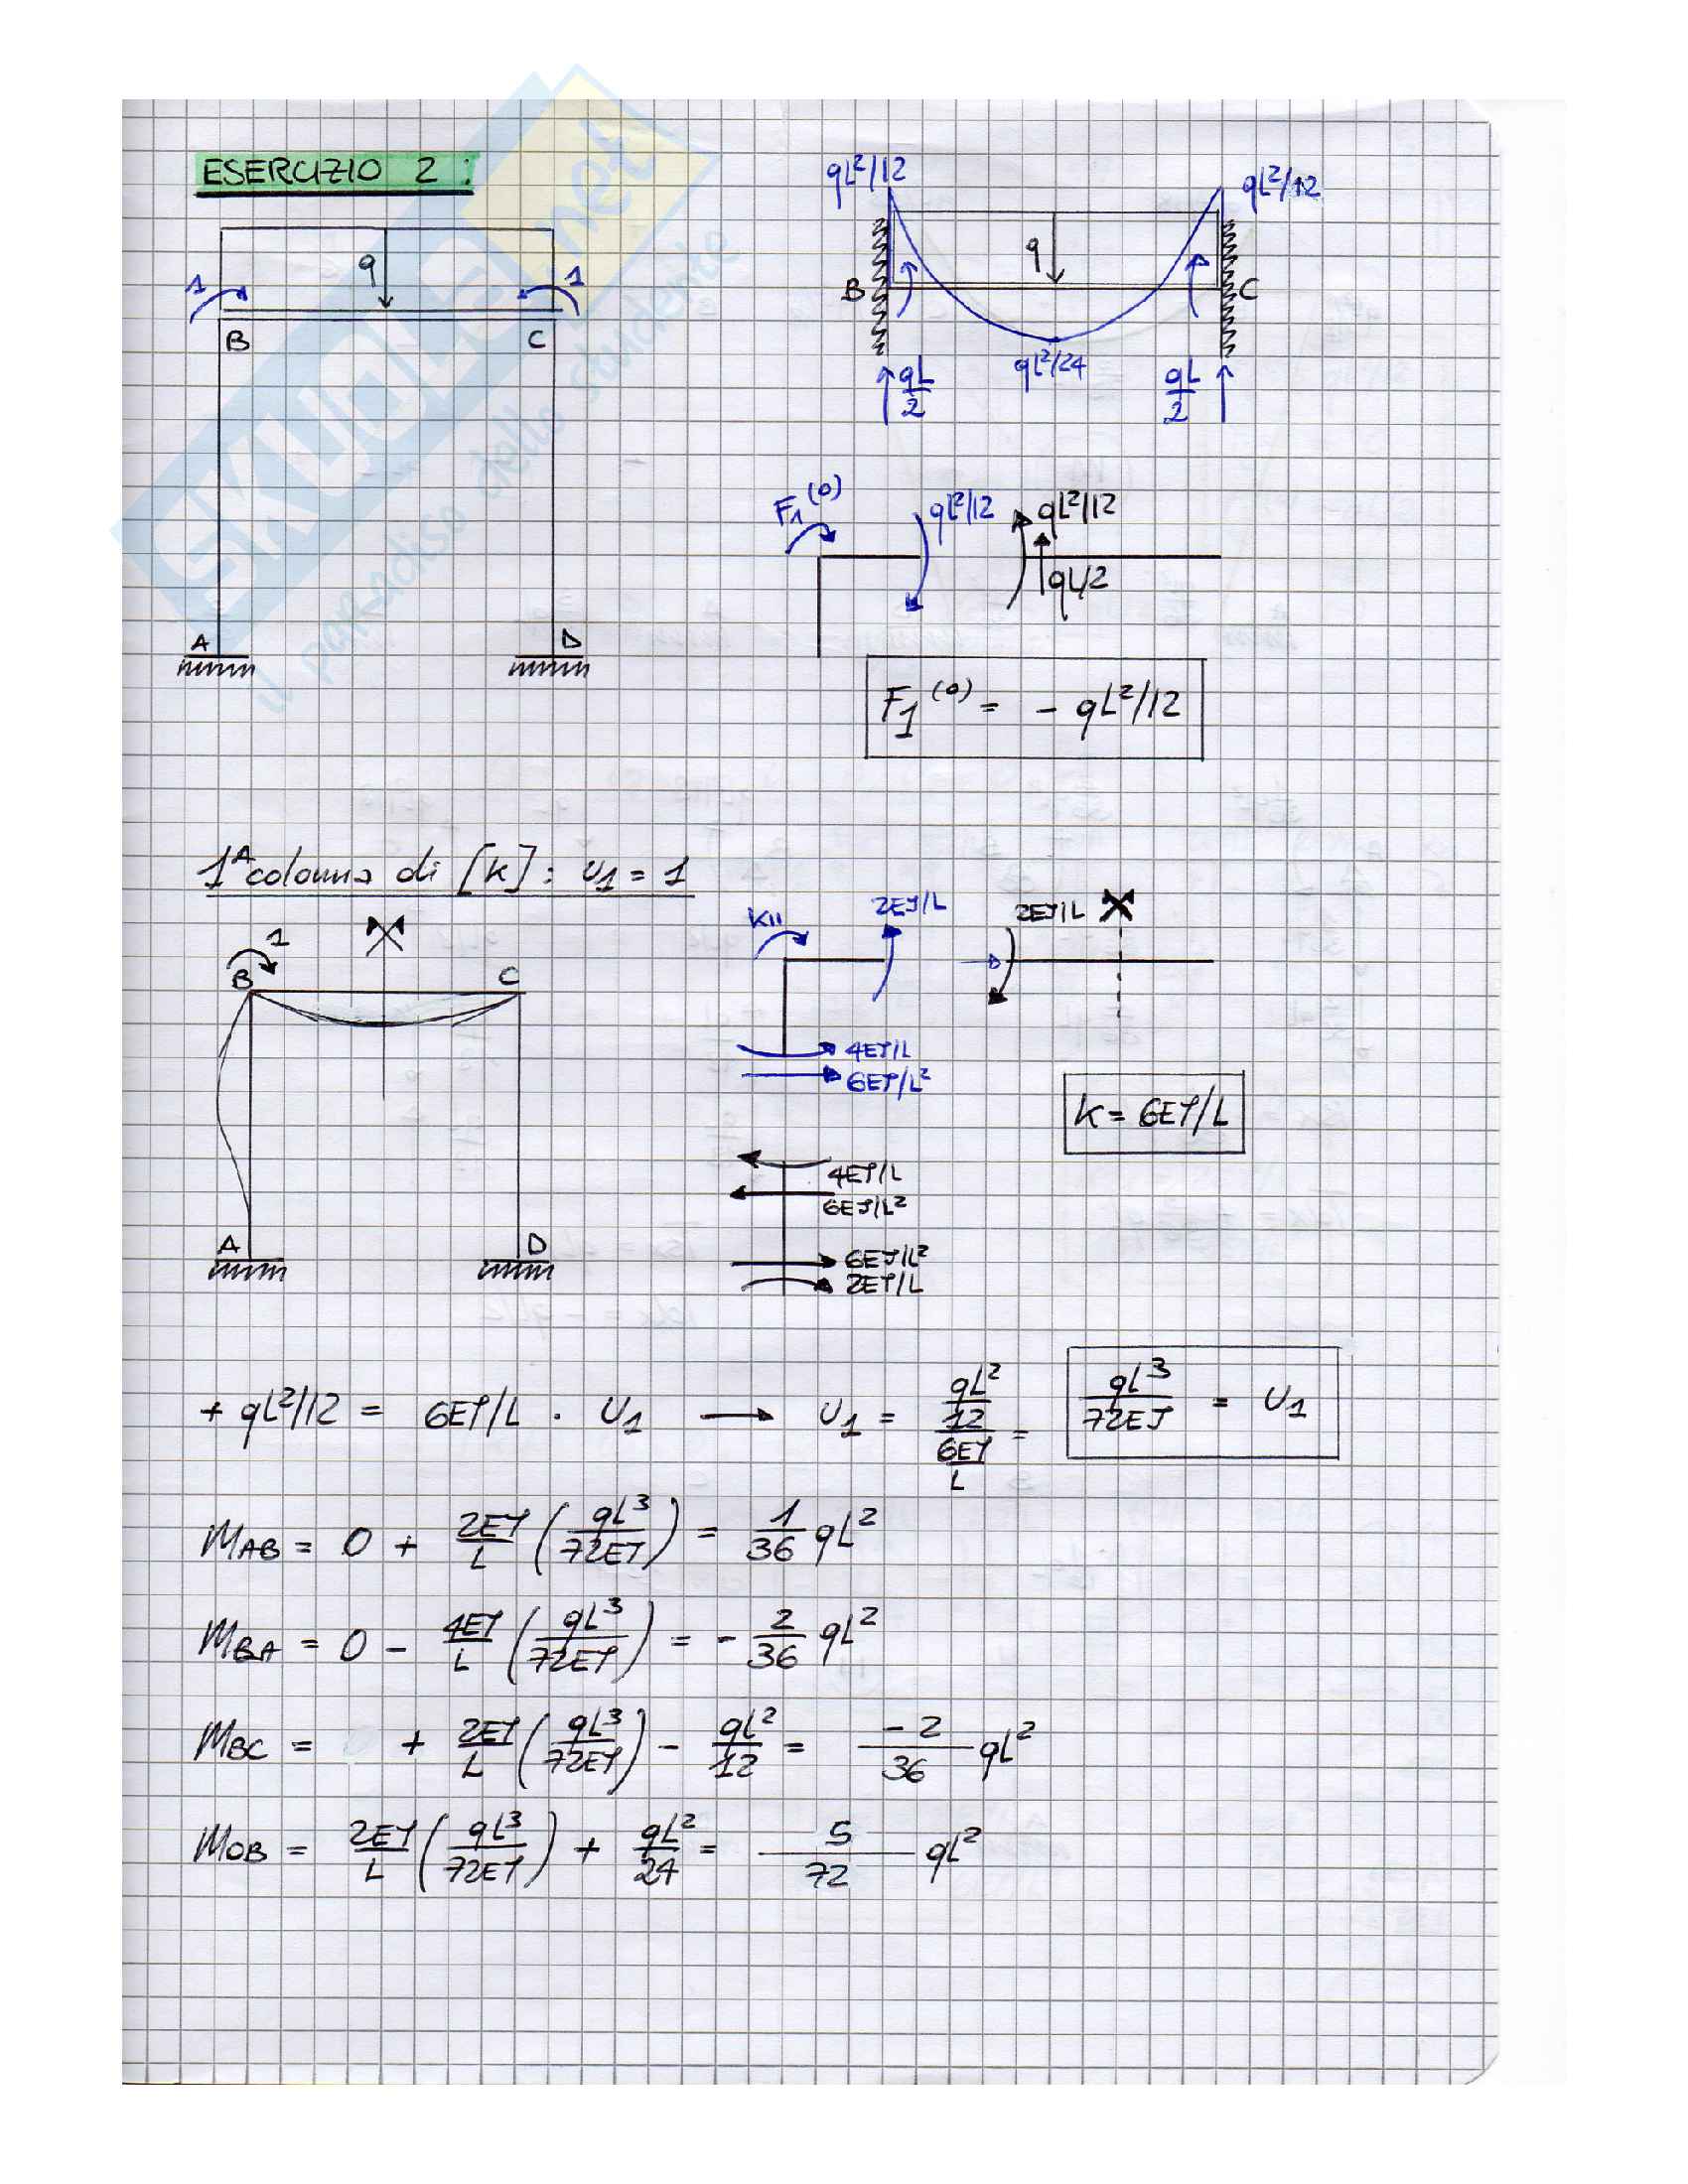 ESERCIZIO 2 :
SKUOLA.net
il paradiso dello studente
1
q
1
B
C
A
D
qL²/12
qL²/12
q
B
C
qL²/24
qL/2
qL/2
F1^(0)
qL²/12
qL²/12
qL/2
F1^(0) = - qL²/12
1^A colonna di [K] : U1 = 1
1
B
C
A
D
K11
2EJ/L
2EJ/L
4EJ/L
6EJ/L²
K = 6EJ/L
4EJ/L
6EJ/L²
6EJ/L²
2EJ/L
+ qL²/12 = 6EJ/L . U1 → U1 = (qL²/12)/(6EJ/L) = qL³/72EJ = U1
MAB = 0 + 2EJ/L (qL³/72EJ) = 1/36 qL²
MBA = 0 - 4EJ/L (qL³/72EJ) = - 2/36 qL²
MBC = + 2EJ/L (qL³/72EJ) - qL²/12 = -2/36 qL²
MOB = 2EJ/L (qL³/72EJ) + qL²/24 = 5/72 qL²